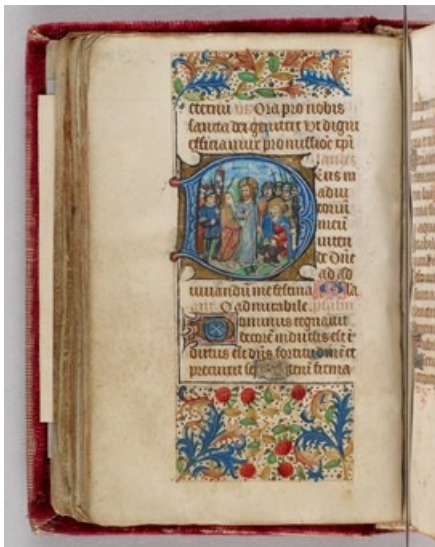 eternu us Ora pro nobis
sancta dei genitrix Ut digni
efficiamur promissiōē xpi
laudes
Eus in
adiu
toriū
meū
inten
de Dn̄e
ad ad
iuuandū me festina
O admirabile. psalm
ominus regnauit
decorē indutus est i
dutus est dn̄s fortitudinē et
precinxit se firma